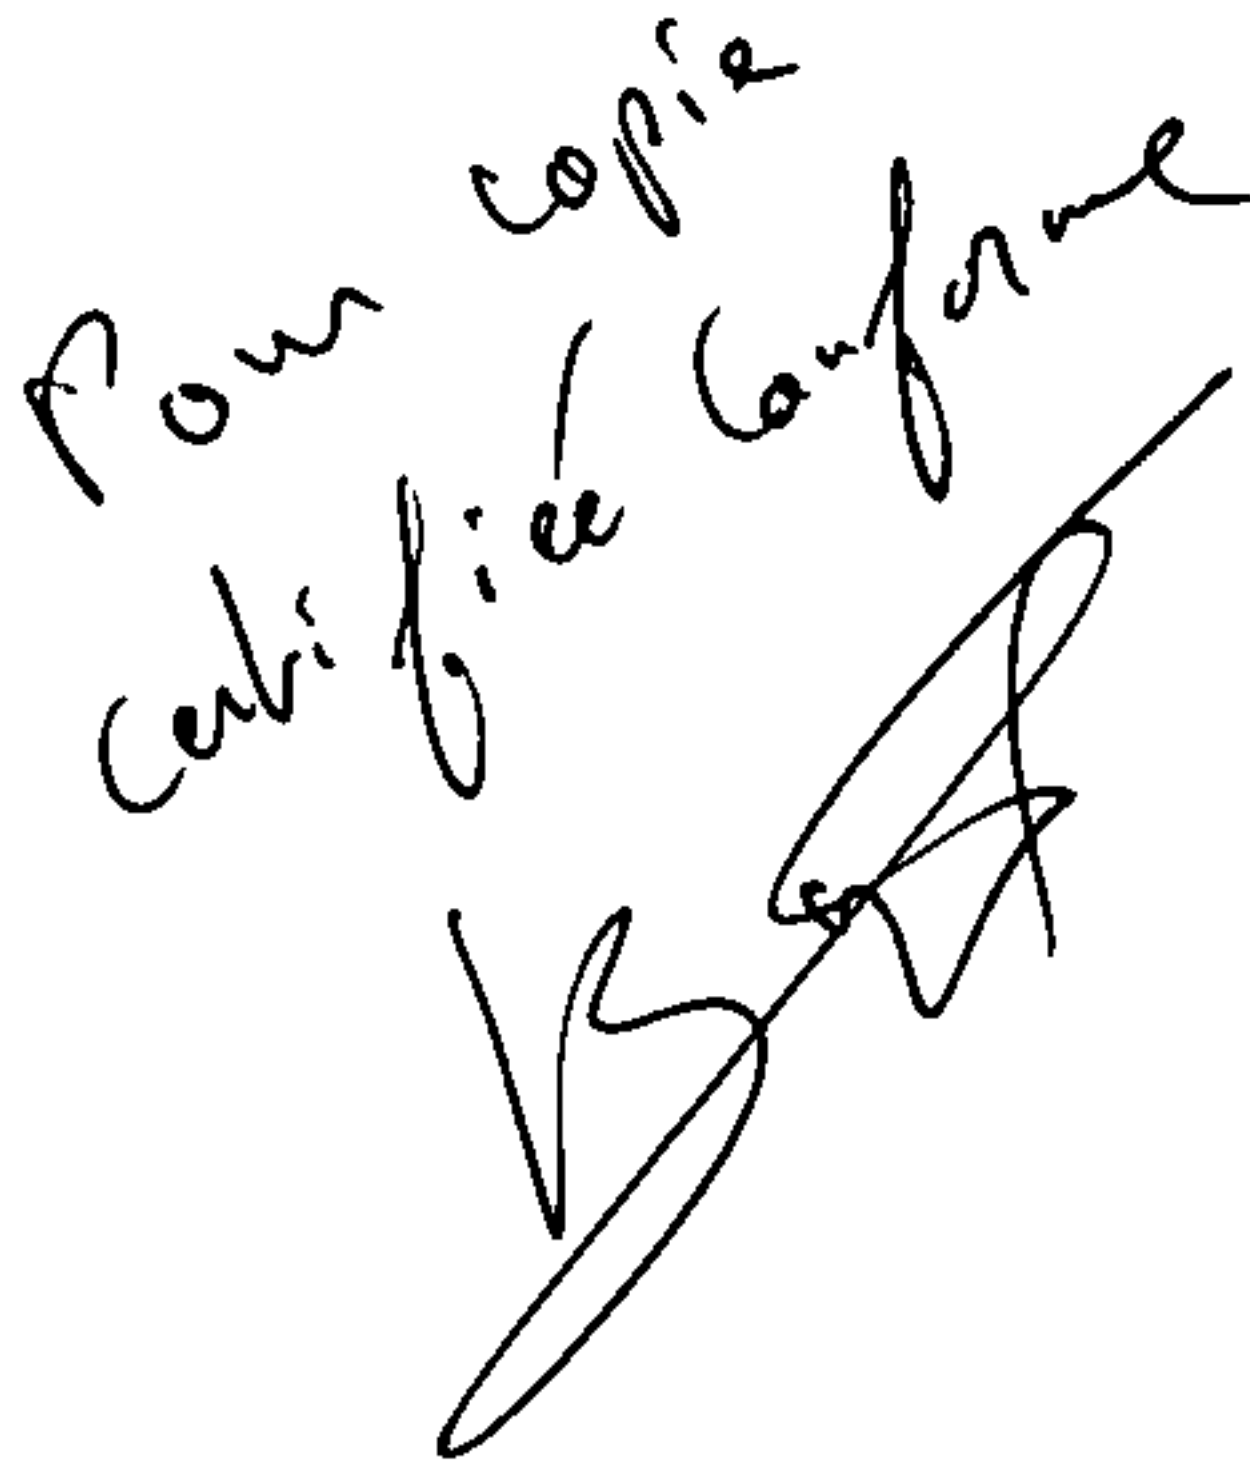 Pour copie
certifiée conforme